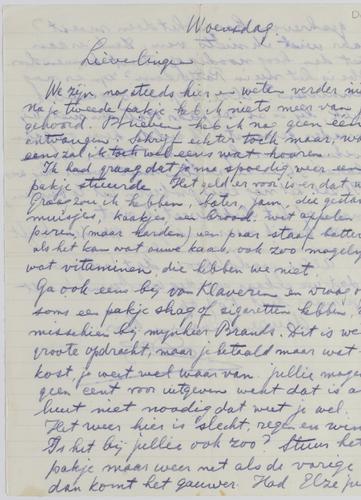 Woensdag.
Lievelingen
We zijn nog steeds hier en weten verder
Na je tweede pakje heb ik niets meer van
gehoord. Brieven heb ik nog geen
ontvangen. Schrijf echter toch maar,
eens zal ik toch wel eens wat hooren
Ik had graag dat je me spoedig weer een
pakje stuurde. Het geld er voor is er dat
Graag zou ik hebben, boter, jam, die
muisjes, kaakjes, een brood. wat appelen
peren, (maar harden) een paar staaf
als het kan wat ouwe kaas, ook zoo
wat vitaminen, die hebben we niet.
Ga ook eens bij van Klaveren en vraag
soms een pakje shag of sigaretten hebben,
misschien bij mijnheer Brands. Dit is
groote opdracht, maar je betaald maar wat
kost, je weet wel waar van. jullie
geen cent voor uitgeven want dat is
heus niet noodig dat weet je wel.
Het weer hier is slecht, regen en
Is het bij jullie ook zoo? Stuur het
pakje maar weer net als de vorige
dan komt het gauwer. Had Elze